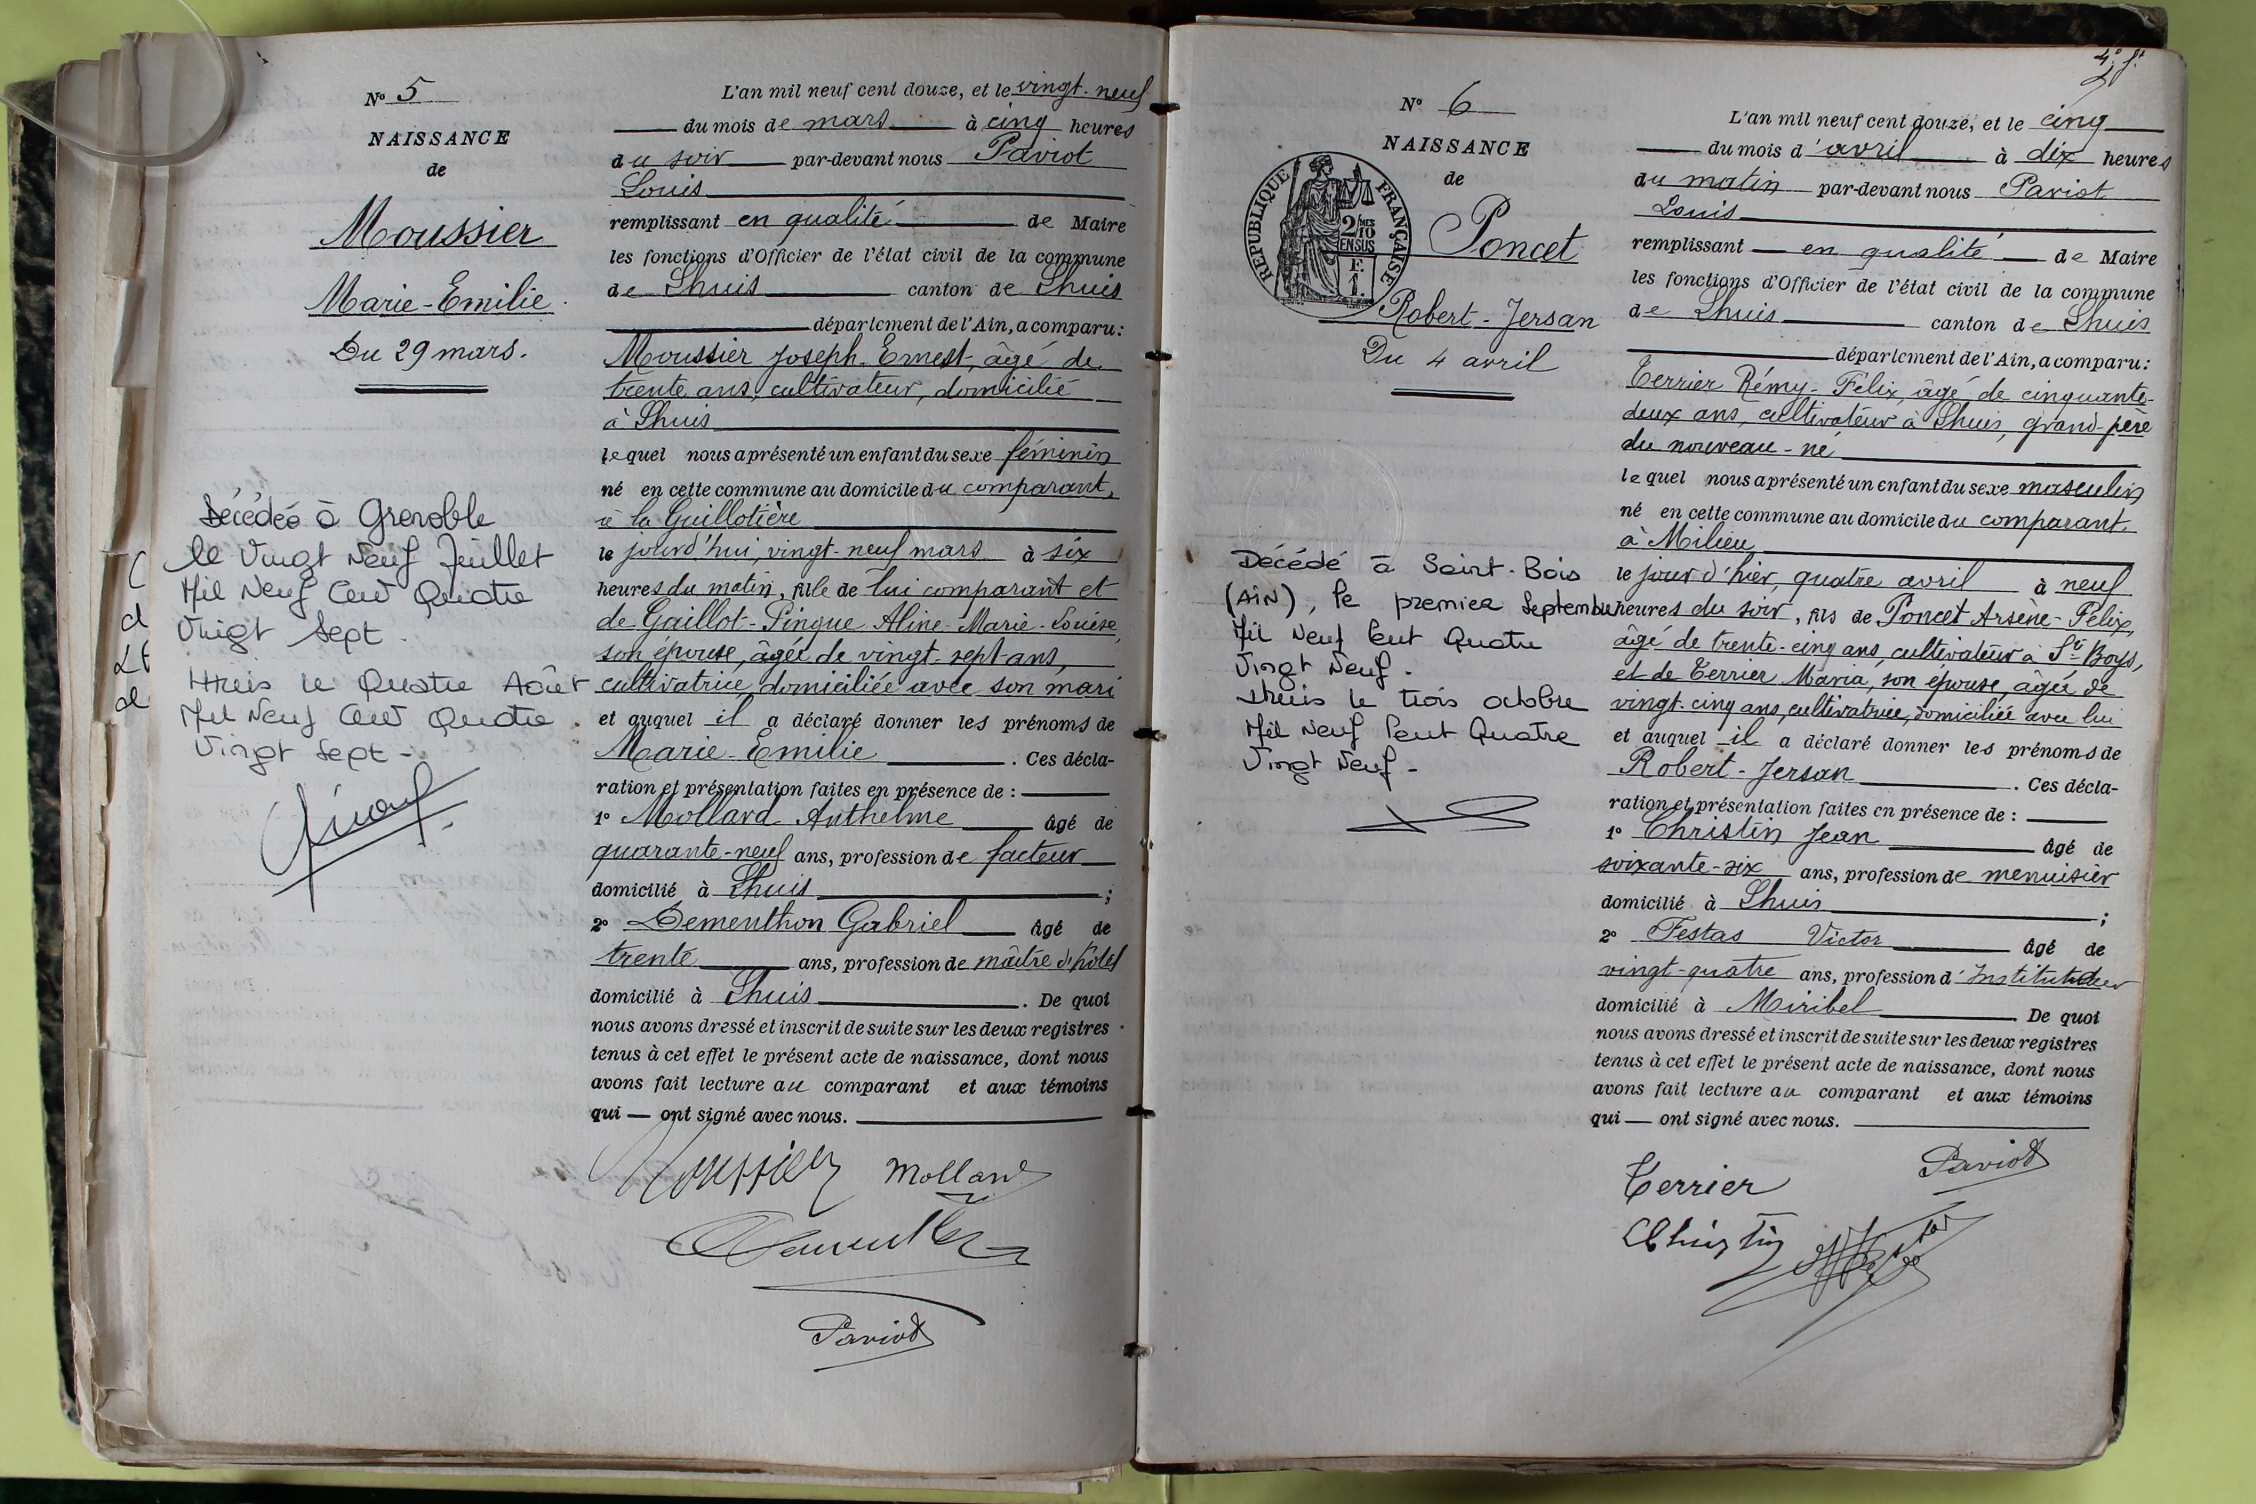 N° 5
NAISSANCE
de
Moussier
Marie-Emilie.
Du 29 mars.
Décédée à Grenoble
le Vingt Neuf Juillet
Mil Neuf Cent Quatre
Vingt Sept.
Lhuis le Quatre Août
Mil Neuf Cent Quatre
Vingt Sept -
L'an mil neuf cent douze, et le vingt-neuf
du mois de mars à cinq heures
du soir par-devant nous Paviot
Louis
remplissant en qualité de Maire
les fonctions d'Officier de l'état civil de la commune
de Lhuis canton de Lhuis
département de l'Ain, a comparu:
Moussier Joseph-Ernest, âgé de
trente ans, cultivateur, domicilié
à Lhuis
lequel nous a présenté un enfant du sexe féminin
né en cette commune au domicile du comparant,
à la Guillotière
le jourd'hui, vingt-neuf mars à six
heures du matin, fille de lui comparant et
de Gaillot-Pingue Aline-Marie-Louise,
son épouse, âgée de vingt-sept ans,
cultivatrice, domiciliée avec son mari
et auquel il a déclaré donner les prénoms de
Marie-Emilie. Ces décla-
ration et présentation faites en présence de:
1° Mollard Anthelme âgé de
quarante-neuf ans, profession de facteur
domicilié à Lhuis;
2° Dementhon Gabriel âgé de
trente ans, profession de maître d'hôtel
domicilié à Lhuis. De quoi
nous avons dressé et inscrit de suite sur les deux registres
tenus à cet effet le présent acte de naissance, dont nous
avons fait lecture au comparant et aux témoins
qui — ont signé avec nous.
Moussier Mollard
Dementhon
Paviot
4e ft
N° 6
NAISSANCE
de
RÉPUBLIQUE FRANÇAISE
2/10 MES
EN SUS
F.
1.
Poncet
Robert-Jersan
Du 4 avril
Décédé à Saint-Bois
(AIN), le premier Septembre
Mil Neuf Cent Quatre
Vingt Neuf.
Lhuis le trois octobre
Mil Neuf Cent Quatre
Vingt Neuf -
L'an mil neuf cent douze, et le cinq
du mois d'avril à dix heures
du matin par-devant nous Paviot
Louis
remplissant en qualité de Maire
les fonctions d'Officier de l'état civil de la commune
de Lhuis canton de Lhuis
département de l'Ain, a comparu:
Terrier Rémy-Felix, âgé de cinquante-
deux ans, cultivateur à Lhuis, grand-père
du nouveau-né
lequel nous a présenté un enfant du sexe masculin
né en cette commune au domicile du comparant
à Milieu
le jour d'hier, quatre avril à neuf
heures du soir, fils de Poncet Arsène-Félix,
âgé de trente-cinq ans, cultivateur à St-Boys,
et de Terrier Maria, son épouse, âgée de
vingt-cinq ans, cultivatrice, domiciliée avec lui
et auquel il a déclaré donner les prénoms de
Robert-Jersan. Ces décla-
ration et présentation faites en présence de:
1° Christin Jean âgé de
soixante-six ans, profession de menuisier
domicilié à Lhuis;
2° Festas Victor âgé de
vingt-quatre ans, profession d'Instituteur
domicilié à Miribel De quoi
nous avons dressé et inscrit de suite sur les deux registres
tenus à cet effet le présent acte de naissance, dont nous
avons fait lecture au comparant et aux témoins
qui — ont signé avec nous.
Terrier Paviot
Christin